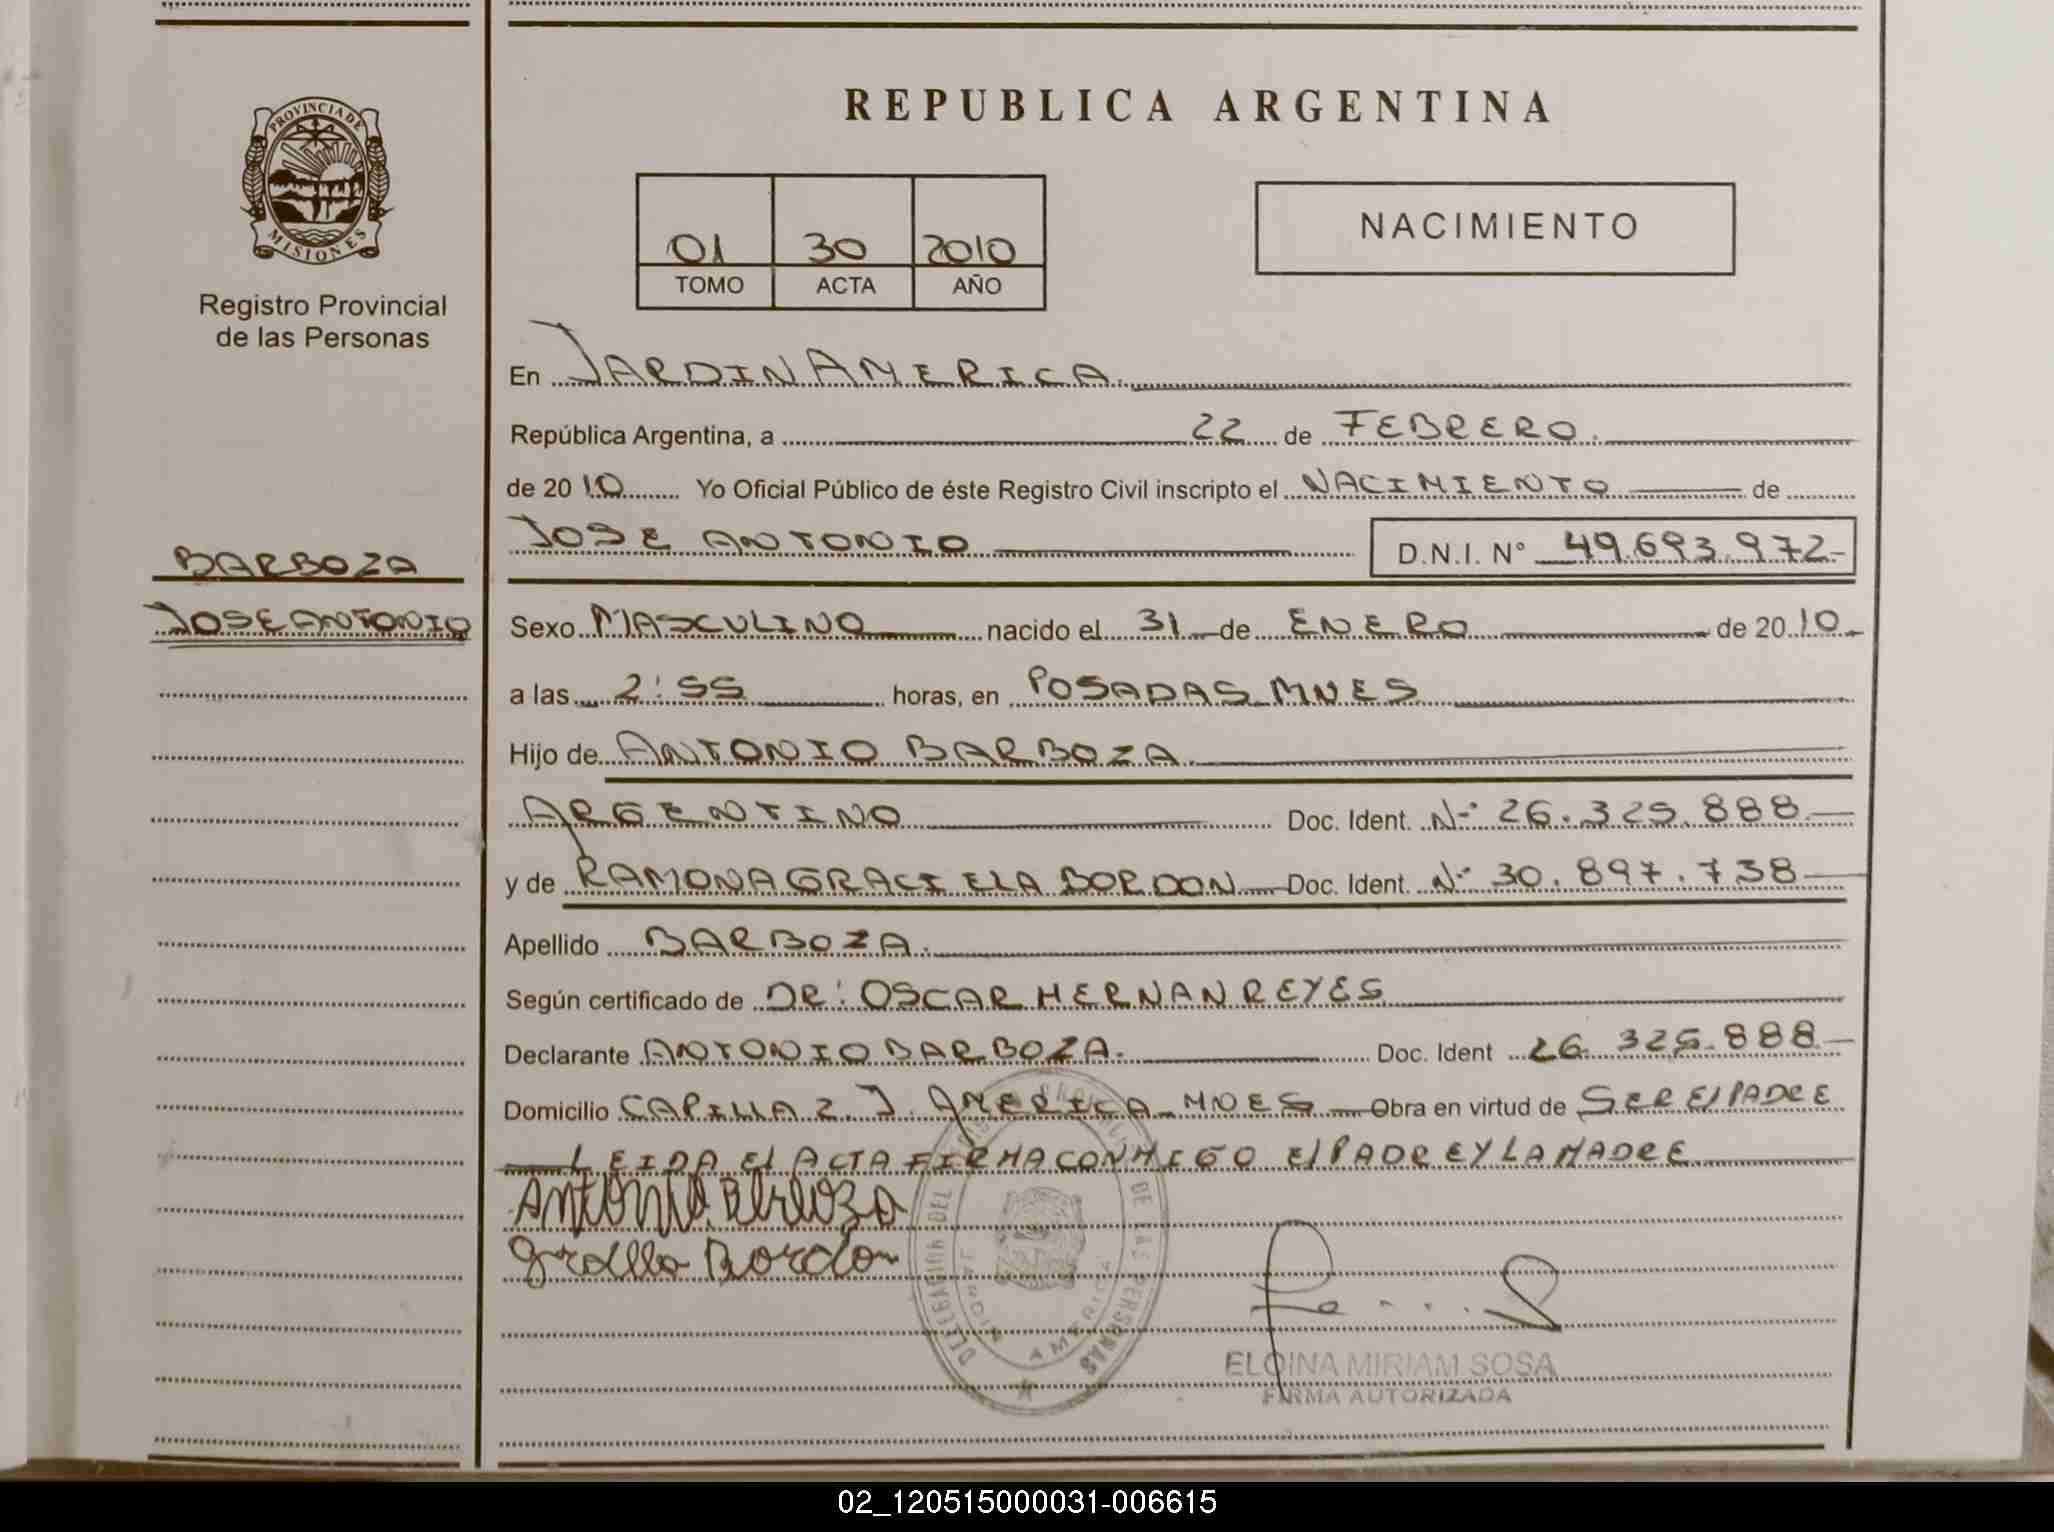 PROVINCIA DE
MISIONES
Registro Provincial
de las Personas
BARBOZA
JOSE ANTONIO
REPUBLICA ARGENTINA
01 30 2010
TOMO ACTA AÑO
NACIMIENTO
En JARDIN AMERICA.
República Argentina, a 22 de FEBRERO.
de 2010 Yo Oficial Público de éste Registro Civil inscripto el NACIMIENTO de
JOSE ANTONIO D.N.I. N° 49.693.972-
Sexo MASCULINO nacido el 31 de ENERO de 2010
a las 2:55 horas, en POSADAS MNES
Hijo de ANTONIO BARBOZA.
ARGENTINO Doc. Ident. N° 26.325.888
y de RAMONA GRACIELA BORDON Doc. Ident. N° 30.897.738
Apellido BARBOZA.
Según certificado de DR: OSCAR HERNAN REYES
Declarante ANTONIO BARBOZA. Doc. Ident 26.325.888
Domicilio CAPILLA 2. J. AMERICA MNES Obra en virtud de SER El PADRE
LEIDA El ACTA FIRMA CONMIGO El PADRE Y LA MADRE
Antonio Barboza
Bordon
DELEGACION DEL REGISTRO PROVINCIAL DE LAS PERSONAS
JARDIN AMERICA
ELOINA MIRIAM SOSA
FIRMA AUTORIZADA
02_120515000031-006615